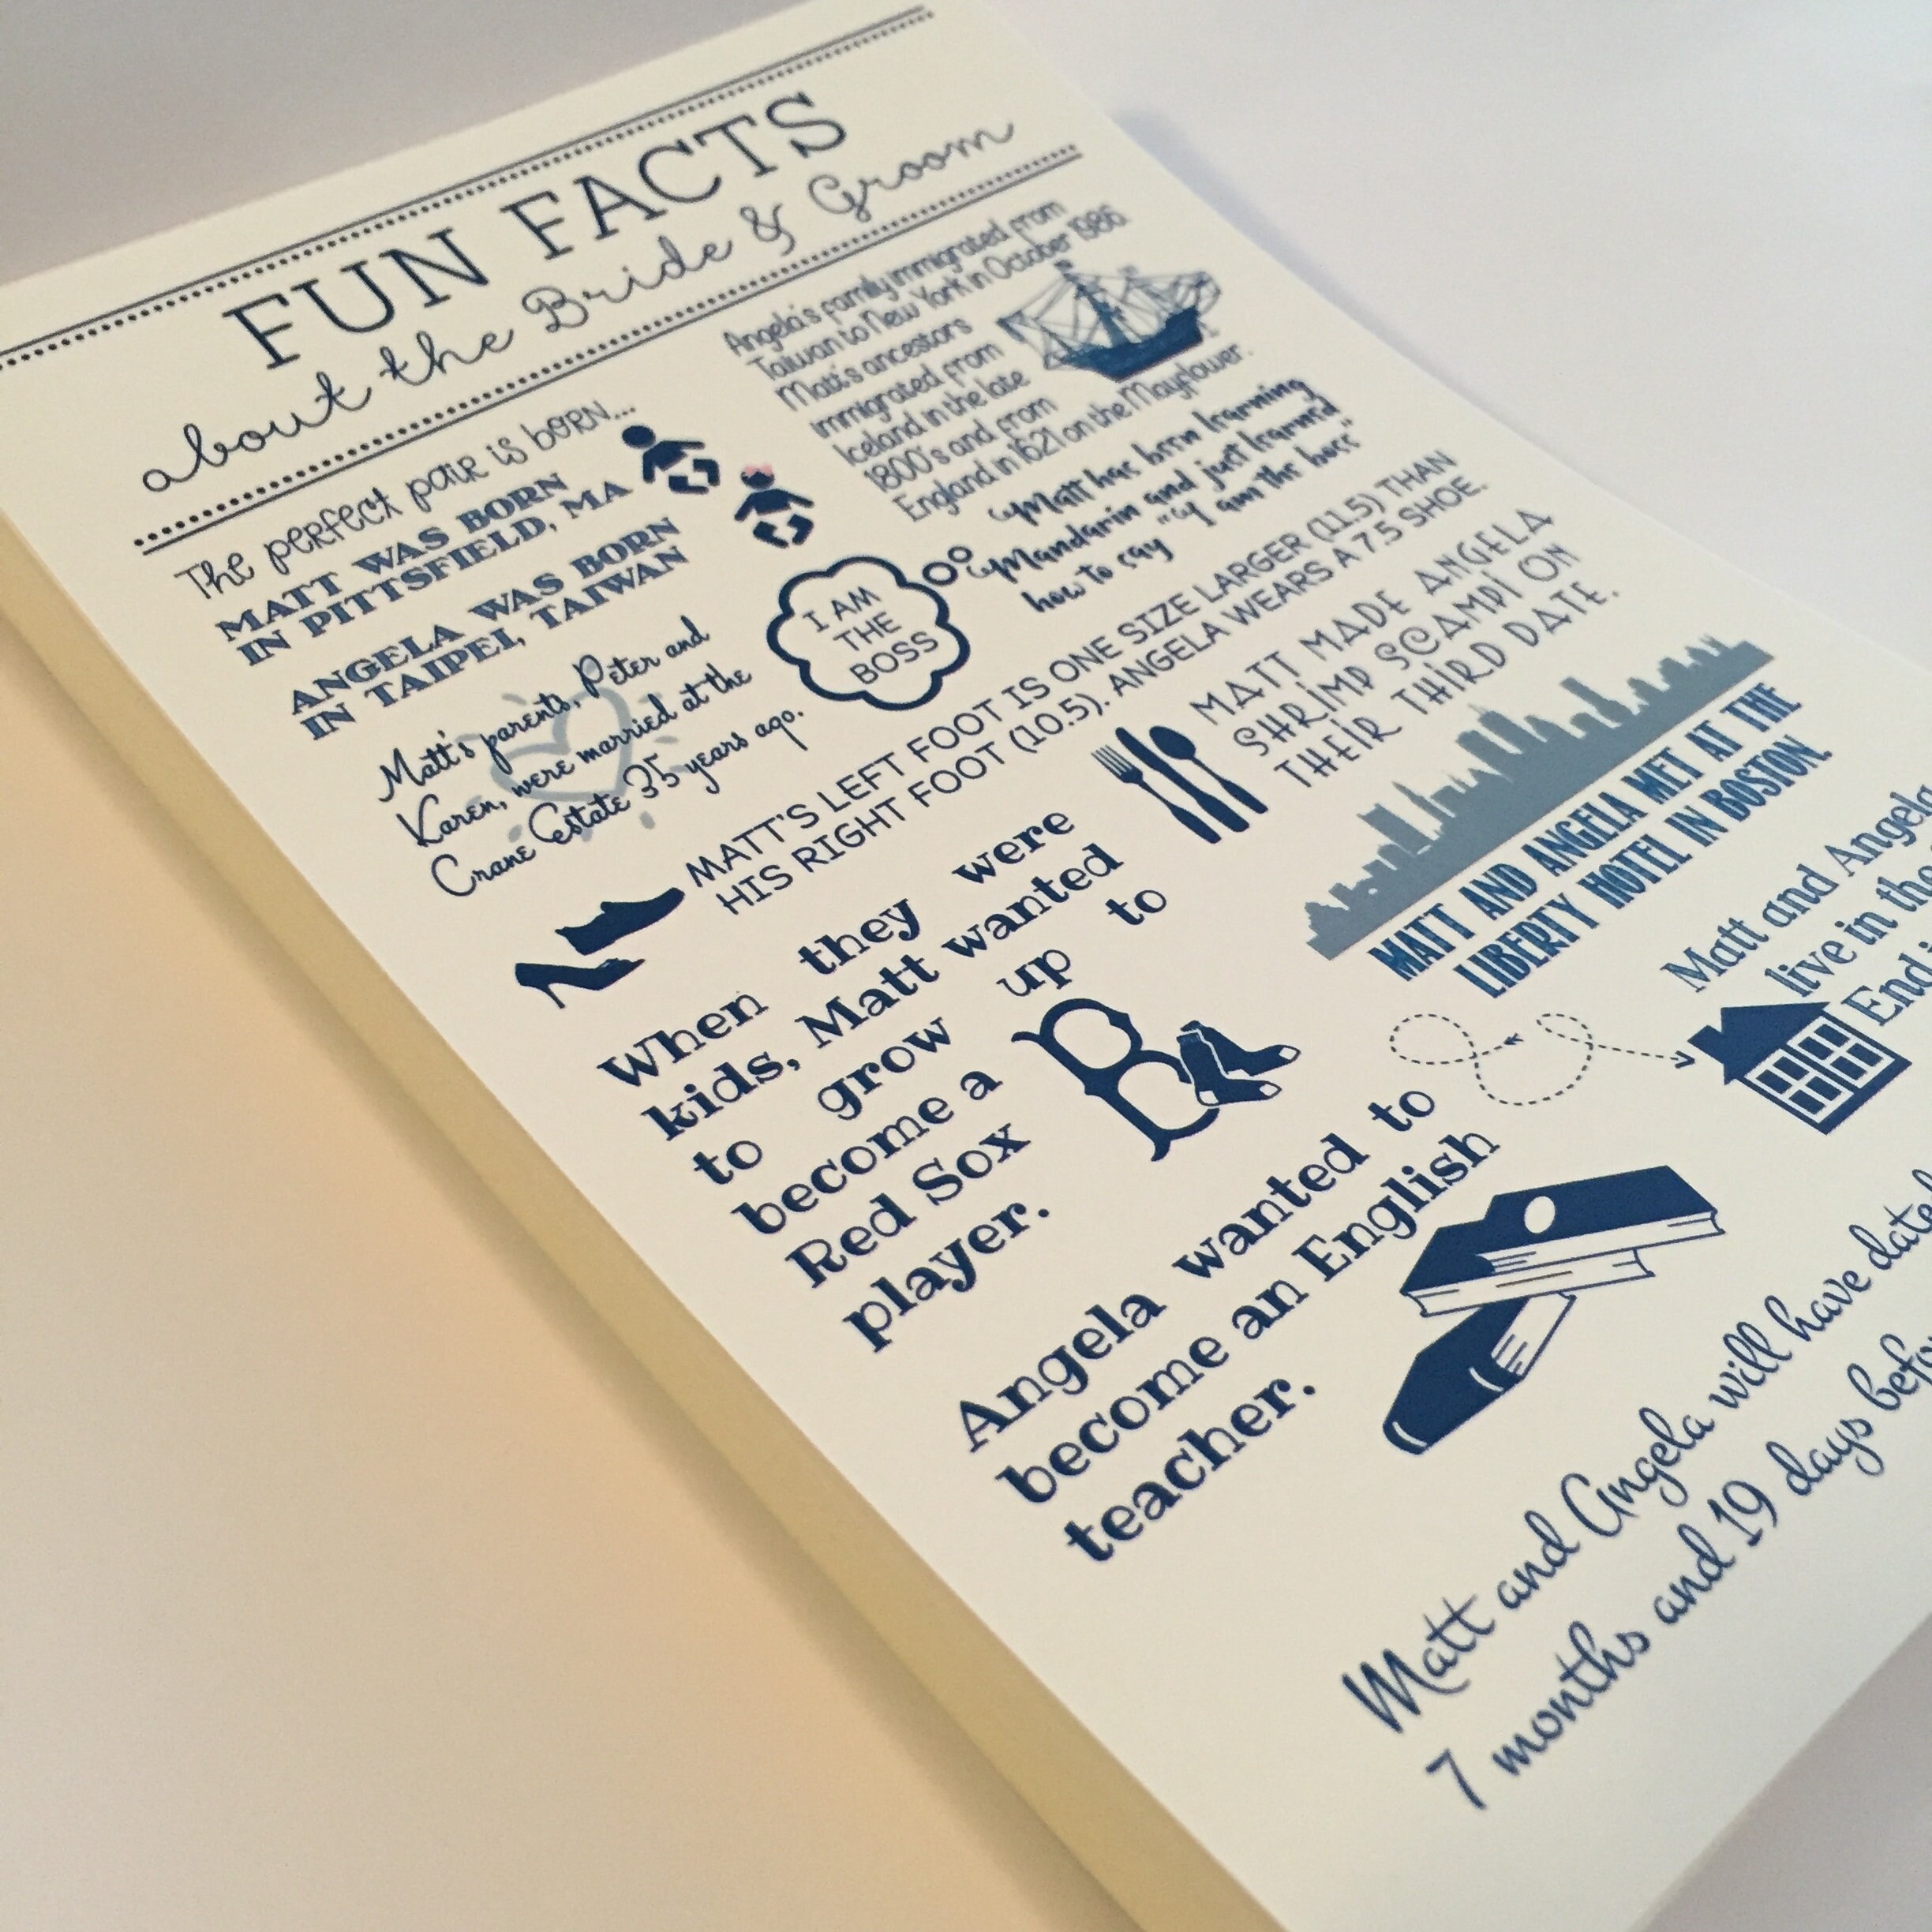 FUN FACTS
about the Bride & Groom
The perfect pair is born...
MATT WAS BORN
IN PITTSFIELD, MA
ANGELA WAS BORN
IN TAIPEI, TAIWAN
Matt's parents, Peter and
Karen, were married at the
Crane Estate 35 years ago.
Angela's family immigrated from
Taiwan to New York in October 1986.
Matt's ancestors
immigrated from
Iceland in the late
1800's and from
England in 1621 on the Mayflower.
Matt has been learning
Mandarin and just learned
how to say "I am the boss"
I AM
THE
BOSS
MATT'S LEFT FOOT IS ONE SIZE LARGER (11.5) THAN
HIS RIGHT FOOT (10.5). ANGELA WEARS A 7.5 SHOE.
MATT MADE ANGELA
SHRIMP SCAMPI ON
THEIR THIRD DATE.
When they were
kids, Matt wanted
to grow up to
become a
Red Sox
player.
B
MATT AND ANGELA MET AT THE
LIBERTY HOTEL IN BOSTON.
Matt and Angela
live in the
End
Angela wanted to
become an English
teacher.
Matt and Angela will have
7 months and 19 days